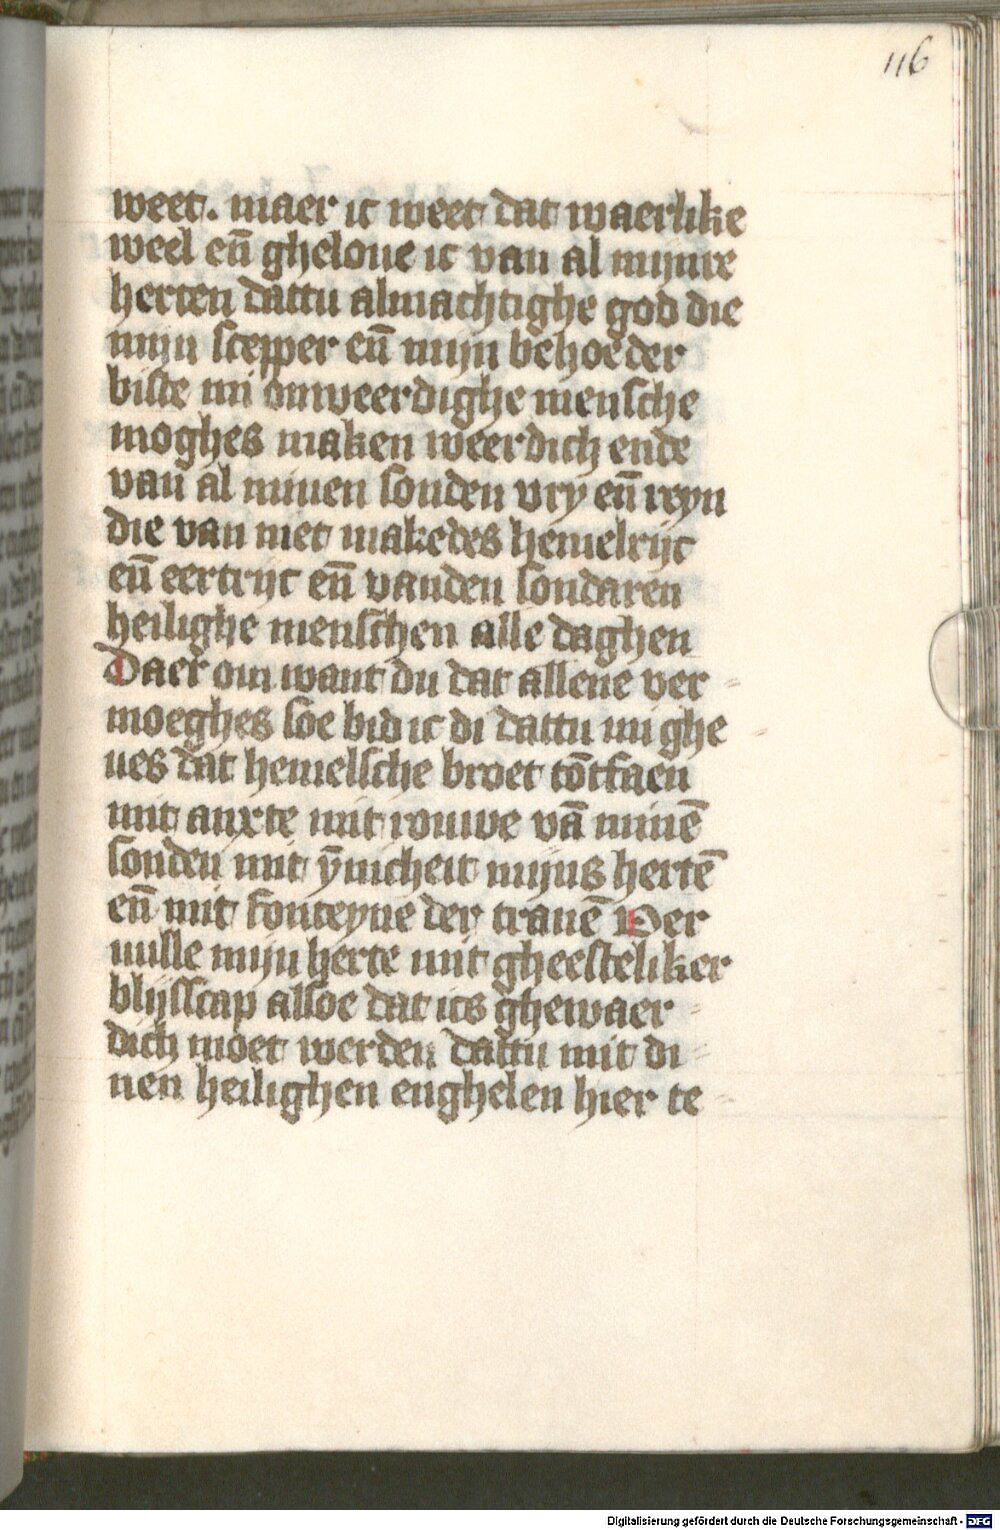 116
weet. maer ic weet dat waerlike
weel en̄ gheloue ic van al mijnre
herten dattu almachtighe god die
mijn scepper en̄ mijn behoeder
biste mi onweerdighe mensche
moghes maken weerdich ende
van al minen sonden vry en̄ reyn
die van niet makedes hemelrijc
en̄ eertrijc en̄ vanden sondaren
heilighe menschen alle daghen
Daer om want du dat allene ver
moeghes soe bid ic di dattu mi ghe
ues dat hemelsche broet tōtfaen
mit anxte mit rouwe vā minē
sonden mit ȳnicheit mijns hertē
en̄ mit fonteyne der tranē Ver
uulle mijn herte mit gheesteliker
blijsscap alsoe dat ics ghewaer
dich moet werden dattu mit di
nen heilighen enghelen hier te
Digitalisierung gefördert durch die Deutsche Forschungsgemeinschaft - DFG